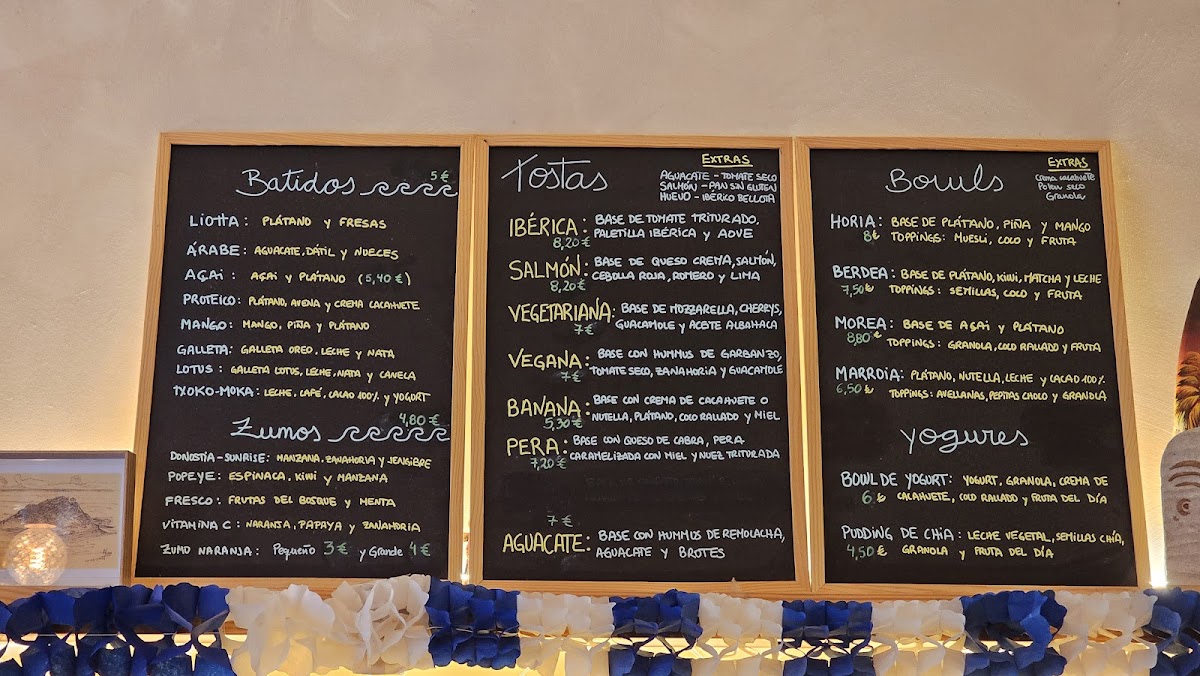 Batidos 5 €
LIOTTA: PLÁTANO Y FRESAS
ÁRABE: AGUACATE, DÁTIL Y NUECES
AÇAI: AÇAI Y PLÁTANO (5,40 €)
PROTEICO: PLÁTANO, AVENA Y CREMA CACAHUETE
MANGO: MANGO, PIÑA Y PLÁTANO
GALLETA: GALLETA OREO, LECHE Y NATA
LOTUS: GALLETA LOTUS, LECHE, NATA Y CANELA
TXOKO-MOKA: LECHE, CAFÉ, CACAO 100% Y YOGURT
Zumos 4,80 €
DONOSTIA-SUNRISE: MANZANA, ZANAHORIA Y JENGIBRE
POPEYE: ESPINACA, KIWI Y MANZANA
FRESCO: FRUTAS DEL BOSQUE Y MENTA
VITAMINA C: NARANJA, PAPAYA Y ZANAHORIA
ZUMO NARANJA: Pequeño 3 € y Grande 4 €
Tostas
EXTRAS
AGUACATE - TOMATE SECO
SALMÓN - PAN SIN GLUTEN
HUEVO - IBÉRICO BELLOTA
IBÉRICA: BASE DE TOMATE TRITURADO,
8,20 € PALETILLA IBÉRICA Y AOVE
SALMÓN: BASE DE QUESO CREMA, SALMÓN,
8,20 € CEBOLLA ROJA, ROMERO Y LIMA
VEGETARIANA: BASE DE MOZZARELLA, CHERRYS,
7 € GUACAMOLE Y ACEITE ALBAHACA
VEGANA: BASE CON HUMMUS DE GARBANZO,
7 € TOMATE SECO, ZANAHORIA Y GUACAMOLE
BANANA: BASE CON CREMA DE CACAHUETE O
5,30 € NUTELLA, PLÁTANO, COCO RALLADO Y MIEL
PERA: BASE CON QUESO DE CABRA, PERA
7,20 € CARAMELIZADA CON MIEL Y NUEZ TRITURADA
7 €
AGUACATE: BASE CON HUMMUS DE REMOLACHA,
AGUACATE Y BROTES
Bowls
EXTRAS
Crema cacahuete
Polen seco
Granola
HORIA: BASE DE PLÁTANO, PIÑA Y MANGO
8 € TOPPINGS: MUESLI, COCO Y FRUTA
BERDEA: BASE DE PLÁTANO, KIWI, MATCHA Y LECHE
7,50 € TOPPINGS: SEMILLAS, COCO Y FRUTA
MOREA: BASE DE AÇAI Y PLÁTANO
8,80 € TOPPINGS: GRANOLA, COCO RALLADO Y FRUTA
MARROIA: PLÁTANO, NUTELLA, LECHE Y CACAO 100%
6,50 € TOPPINGS: AVELLANAS, PEPITAS CHOCO Y GRANOLA
yogures
BOWL DE YOGURT: YOGURT, GRANOLA, CREMA DE
6 € CACAHUETE, COCO RALLADO Y FRUTA DEL DÍA
PUDDING DE CHIA: LECHE VEGETAL, SEMILLAS CHÍA,
4,50 € GRANOLA Y FRUTA DEL DÍA